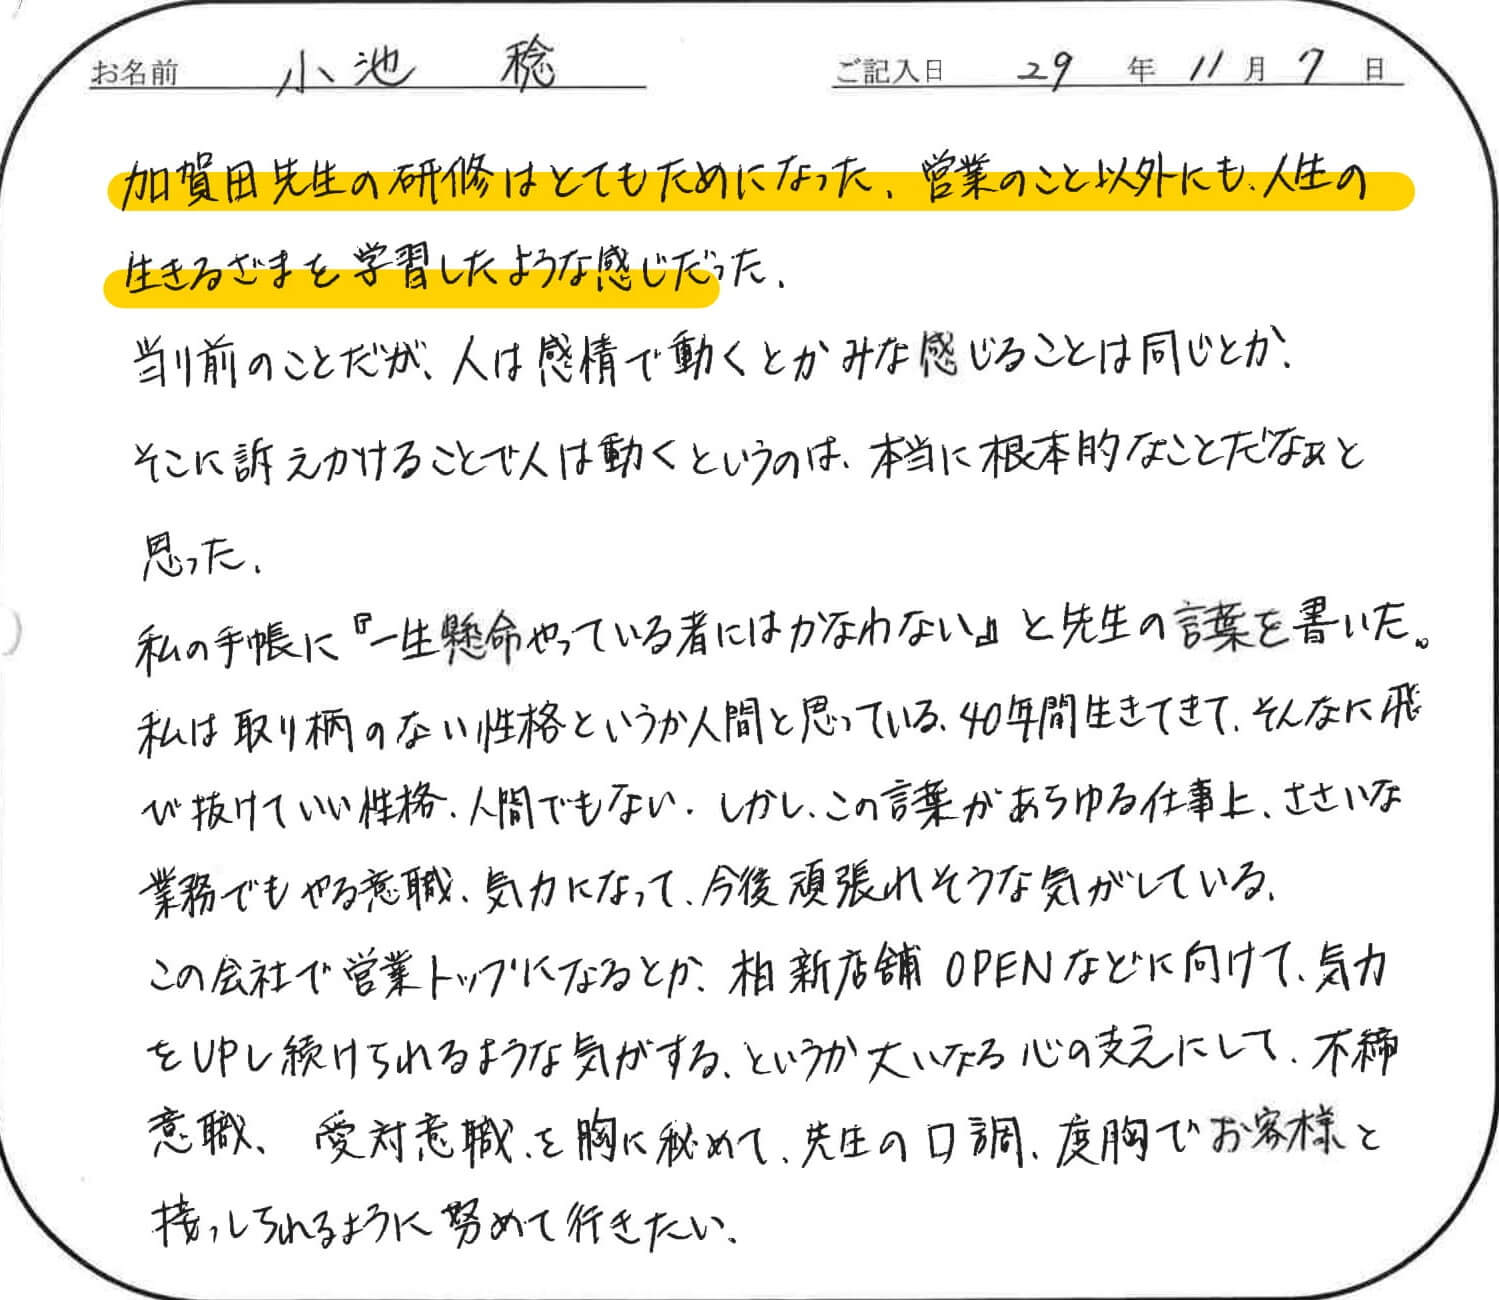 お名前 小池 稔 ご記入日 29年11月7日
加賀田先生の研修はとてもためになった、営業のこと以外にも、人生の
生きるざまを学習したような感じだった、
当り前のことだが、人は感情で動くとかみな感じることは同じとか、
そこに訴えかけることで人は動くというのは、本当に根本的なことだなぁと
思った、
私の手帳に『一生懸命やっている者にはかなわない』と先生の言葉を書いた。
私は取り柄のない性格というか人間と思っている、40年間生きてきて、そんなに飛
び抜けていい性格、人間でもない、しかし、この言葉があらゆる仕事上、ささいな
業務でもやる意職、気力になって、今後頑張れそうな気がしている、
この会社で営業トップになるとか、柏新店舗OPENなどに向けて、気力
をUPし続けられるような気がする、というか大いなる心の支えにして、不締
意職、愛対意職、を胸に秘めて、先生の口調、度胸でお客様と
接っしられるように努めて行きたい、